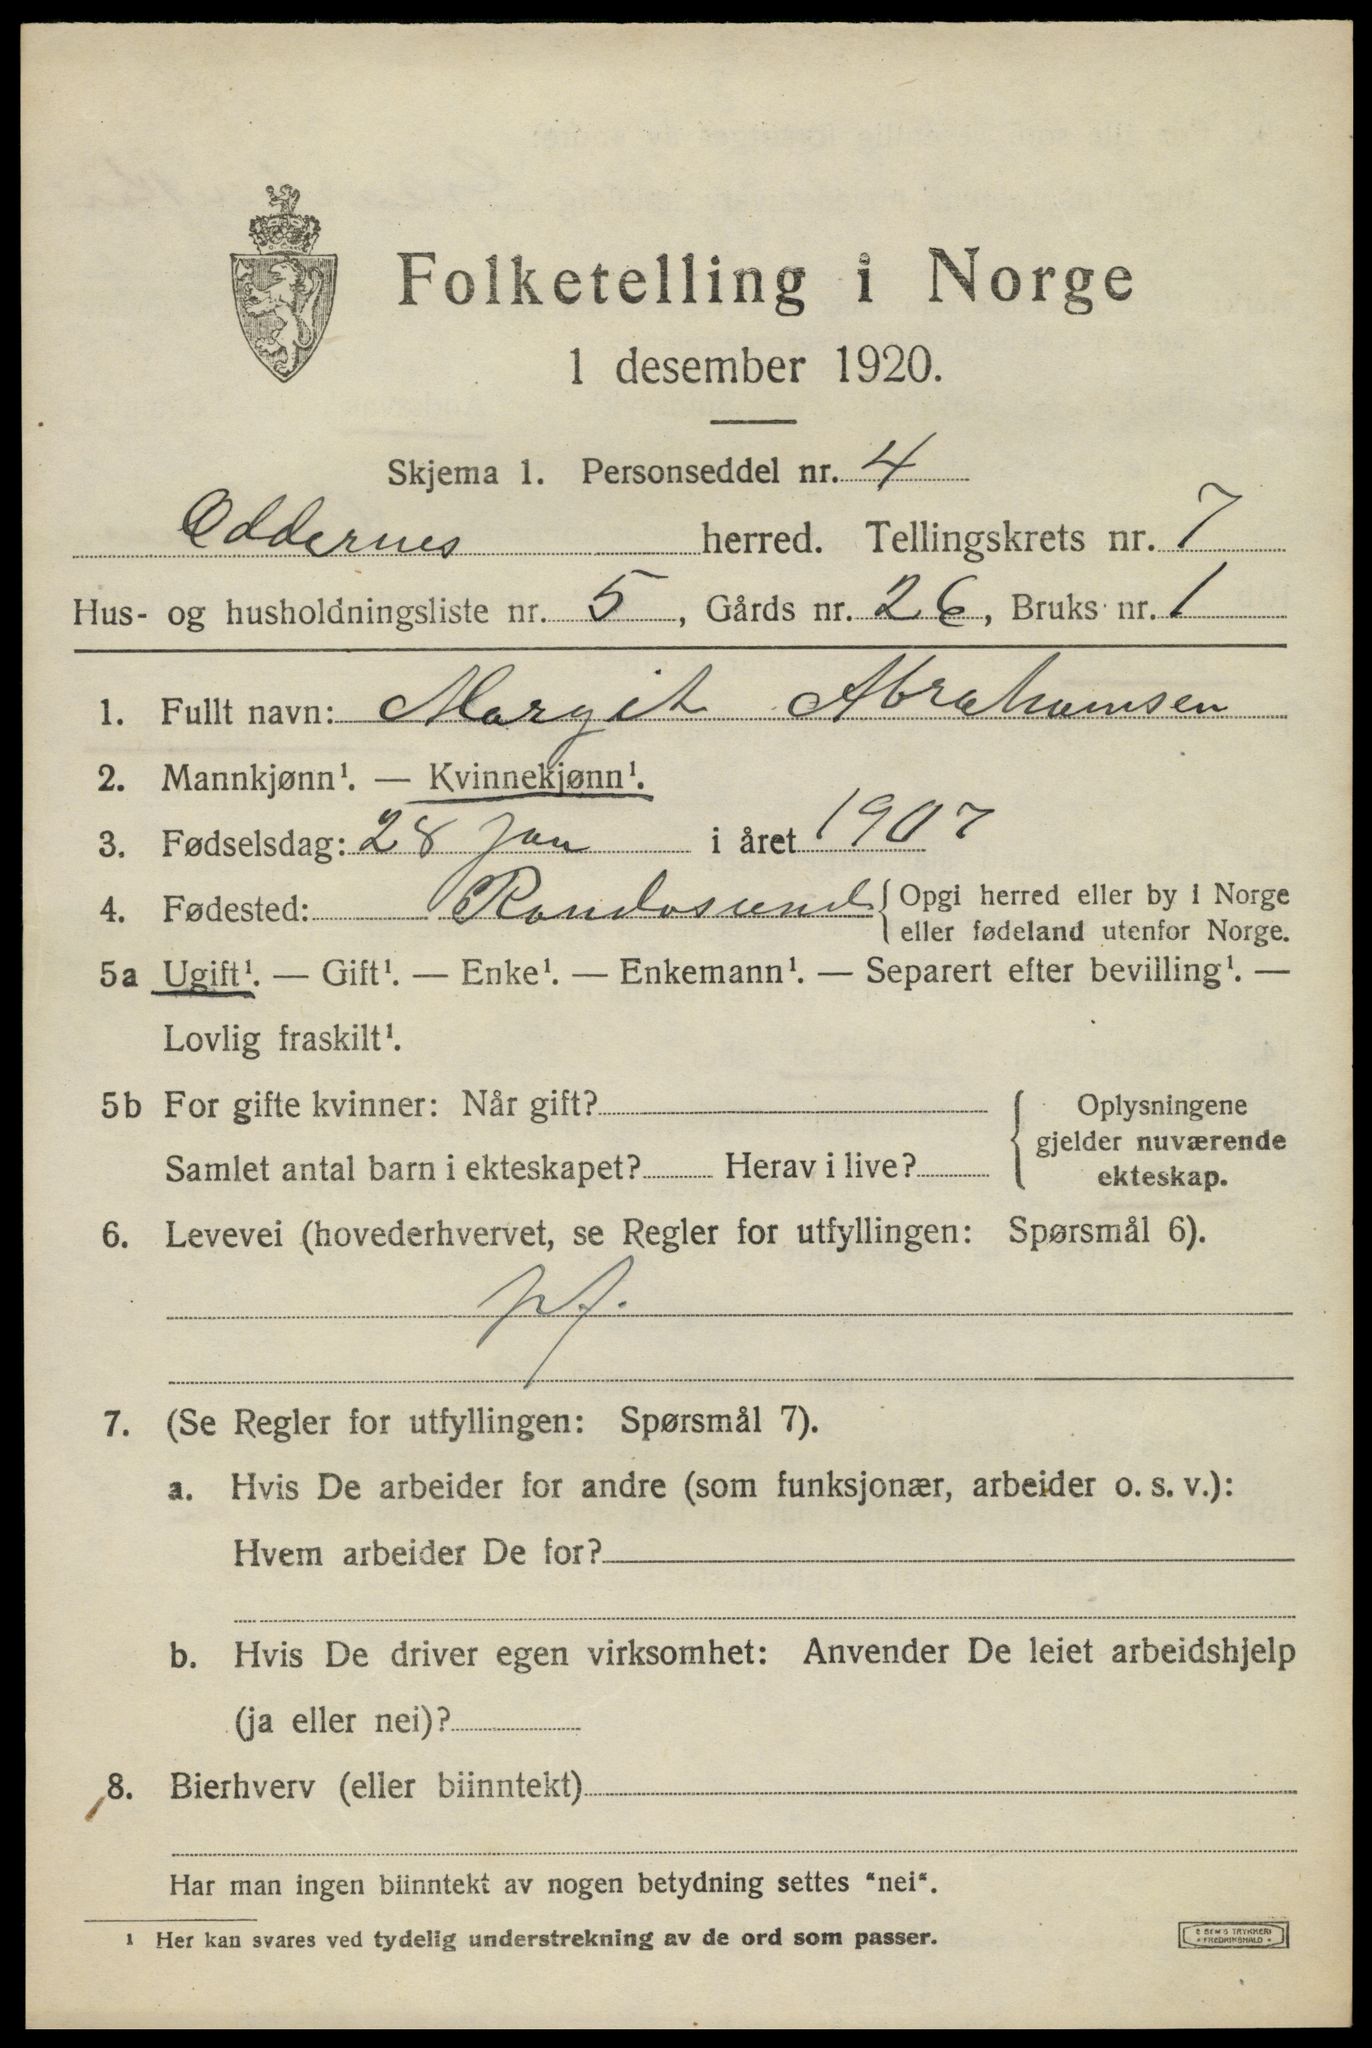 Folketelling i Norge
1 desember 1920.
Skjema 1. Personseddel nr. 4
Oddernes herred. Tellingskrets nr. 7
Hus- og husholdningsliste nr. 5, Gårds nr. 26, Bruks nr. 1
1. Fullt navn: Margit Abrahamsen
2. Mannkjønn¹. — Kvinnekjønn¹.
3. Fødselsdag: 28 Jan i året 1907
4. Fødested: Randøsund { Opgi herred eller by i Norge
eller fødeland utenfor Norge.
5a Ugift¹. — Gift¹. — Enke¹. — Enkemann¹. — Separert efter bevilling¹. —
Lovlig fraskilt¹.
5b For gifte kvinner: Når gift?
Samlet antal barn i ekteskapet? Herav i live?
{ Oplysningene
gjelder nuværende
ekteskap.
6. Levevei (hovederhvervet, se Regler for utfyllingen: Spørsmål 6).
pf.
7. (Se Regler for utfyllingen: Spørsmål 7).
a. Hvis De arbeider for andre (som funksjonær, arbeider o. s. v.):
Hvem arbeider De for?
b. Hvis De driver egen virksomhet: Anvender De leiet arbeidshjelp
(ja eller nei)?
8. Bierhverv (eller biinntekt)
Har man ingen biinntekt av nogen betydning settes "nei".
¹ Her kan svares ved tydelig understrekning av de ord som passer.
TRYKKERI
FREDRIKSHALD